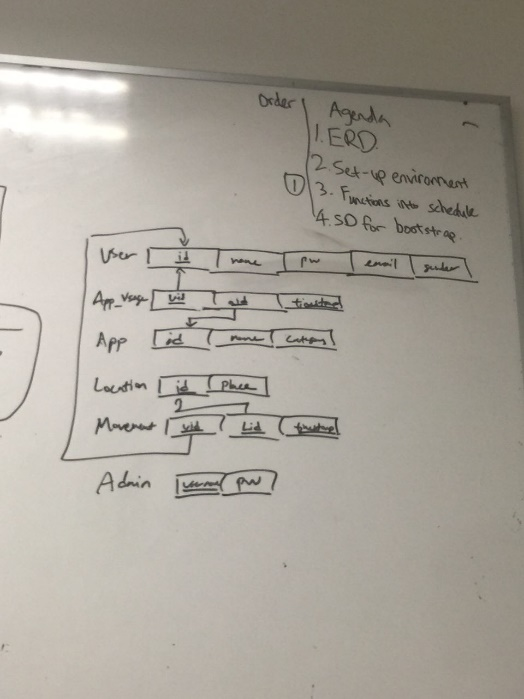 Order
Agenda
1. ERD
2. Set-up environment
① 3. Functions into schedule
4. SD for bootstrap.
User id name pw email gender
App_Usage uid aid timestamp
App id name category
Location id place
2
Movement uid Lid timestamp
Admin username pw